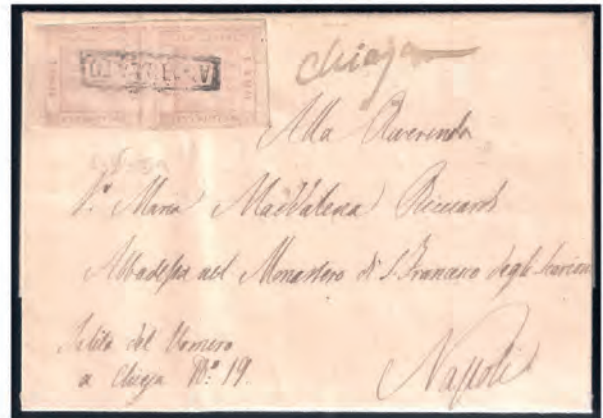 ANNULLATO
Chiaja
Alla Reverenda
Maria Maddalena Ricciardi
Abbadessa nel Monastero di S. Francesco degli
Salita del Vomero
a Chiaja N.º 19.
Napoli